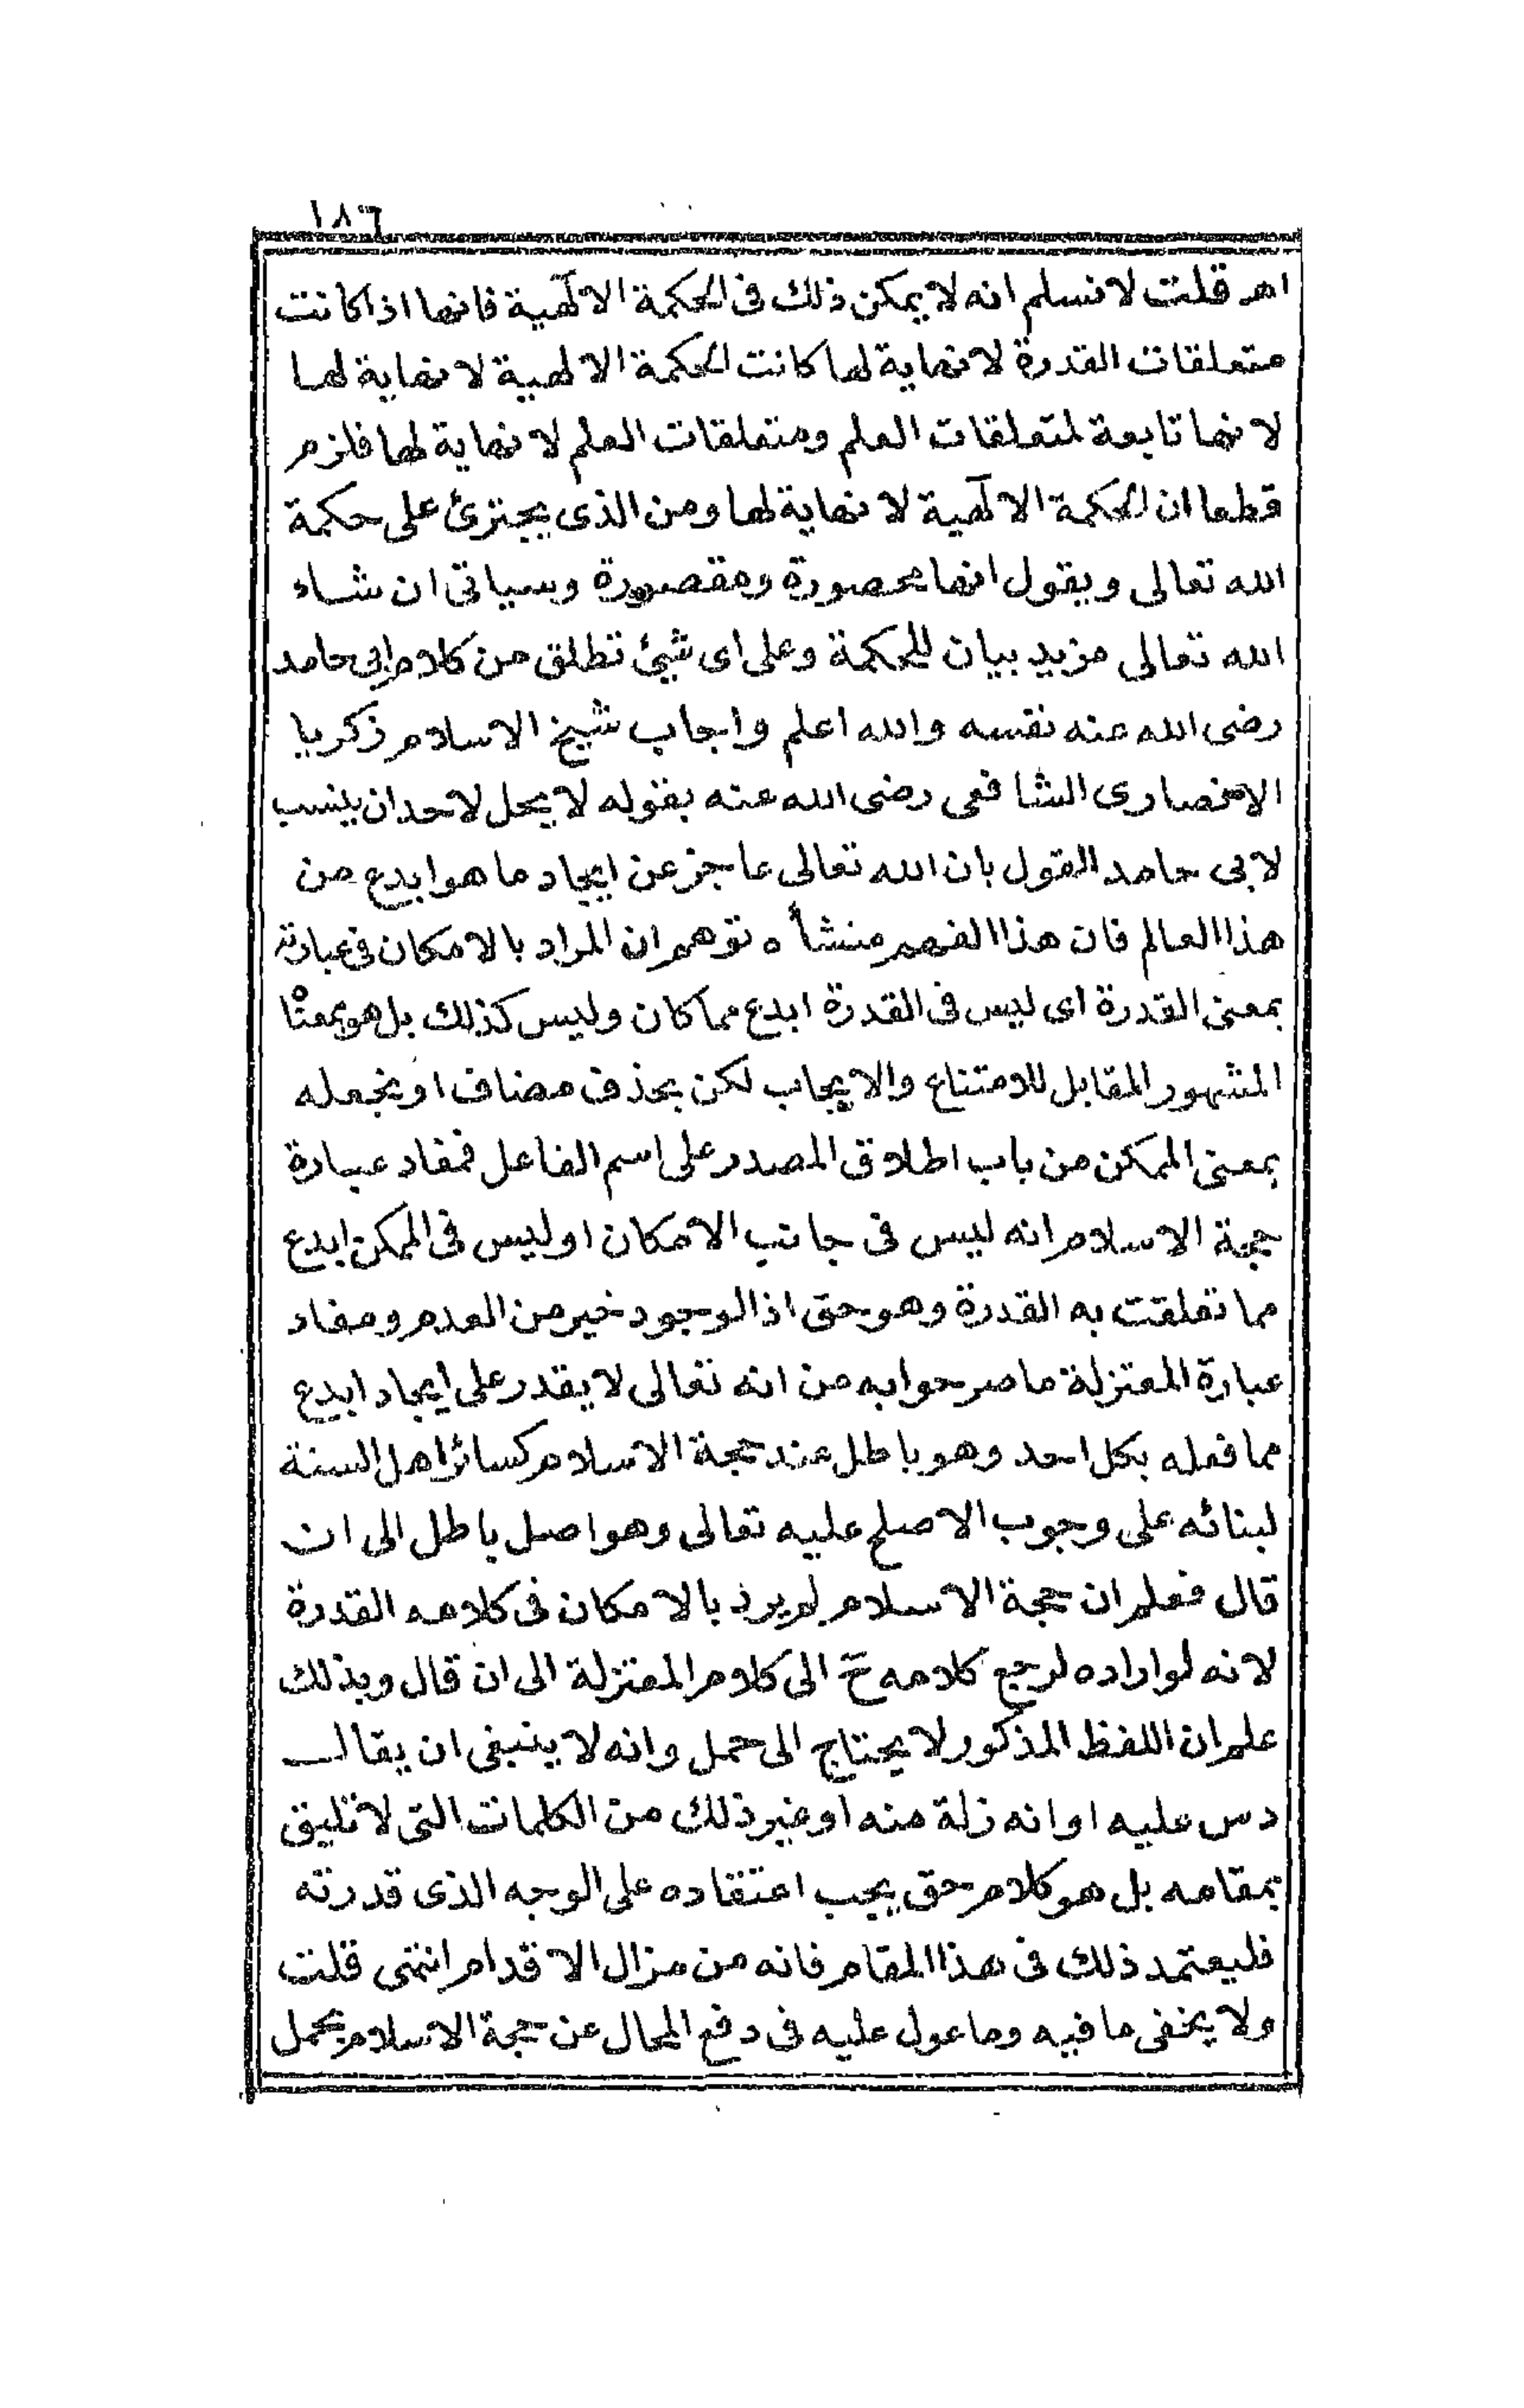 ١٨٦
اهـ قلت لا نسلم انه لا يمكن ذلك فى الحكمة الالٓهية فانها اذا كانت
متعلقات القدرة لا نهاية لها كانت الحكمة الالهية لا نهاية لها
لانها تابعة لمتعلقات العلم ومتعلقات العلم لا نهاية لها فلزم
قطعا ان الحكمة الالٓهية لا نهاية لها ومن الذى يجترئ على حكمة
الله تعالى ويقول انها محصورة ومقصورة وسياتى ان شاء
الله تعالى مزيد بيان للحكمة وعلى اى شيئ تطلق من كلام ابى حامد
رضى الله عنه نفسه والله اعلم واجاب شيخ الاسلام زكريا
الانصارى الشافعى رضى الله عنه بقوله لا يحل لاحد ان ينسب
لابى حامد القول بان الله تعالى عاجز عن ايجاد ما هو ابدع من
هذا العالم فان هذا الفهم منشأه توهم ان المراد بالامكان فى عبارته
بمعنى القدرة اى ليس فى القدرة ابدع مما كان وليس كذلك بل هو بمعناه
المشهور المقابل للامتناع والايجاب لكن بحذف مضاف او بجعله
بمعنى الممكن من باب اطلاق المصدر على اسم الفاعل فمفاد عبارة
حجة الاسلام انه ليس فى جانب الامكان او ليس فى الممكن ابدع
مما تعلقت به القدرة وهو حق اذ الوجود خير من العدم ومفاد
عبارة المعتزلة ما صرحوا به من انه تعالى لا يقدر على ايجاد ابدع
مما فعله بكل احد وهو باطل عند حجة الاسلام كسائر اهل السنة
لبنائه على وجوب الاصلح عليه تعالى وهو اصل باطل الى ان
قال فعلم ان حجة الاسلام لم يرد بالامكان فى كلامه القدرة
لانه لو اراده لرجع كلامه ح الى كلام المعتزلة الى ان قال وبذلك
علم ان اللفظ المذكور لا يحتاج الى حمل وانه لا ينبغى ان يقال
دس عليه او انه زلة منه او غير ذلك من الكلمات التى لا تليق
بمقامه بل هو كلام حق يجب اعتقاده على الوجه الذى قدرته
فليعتمد ذلك فى هذا المقام فانه من مزال الاقدام انتهى قلت
ولا يخفى ما فيه وما عول عليه فى دفع المحال عن حجة الاسلام بحمل